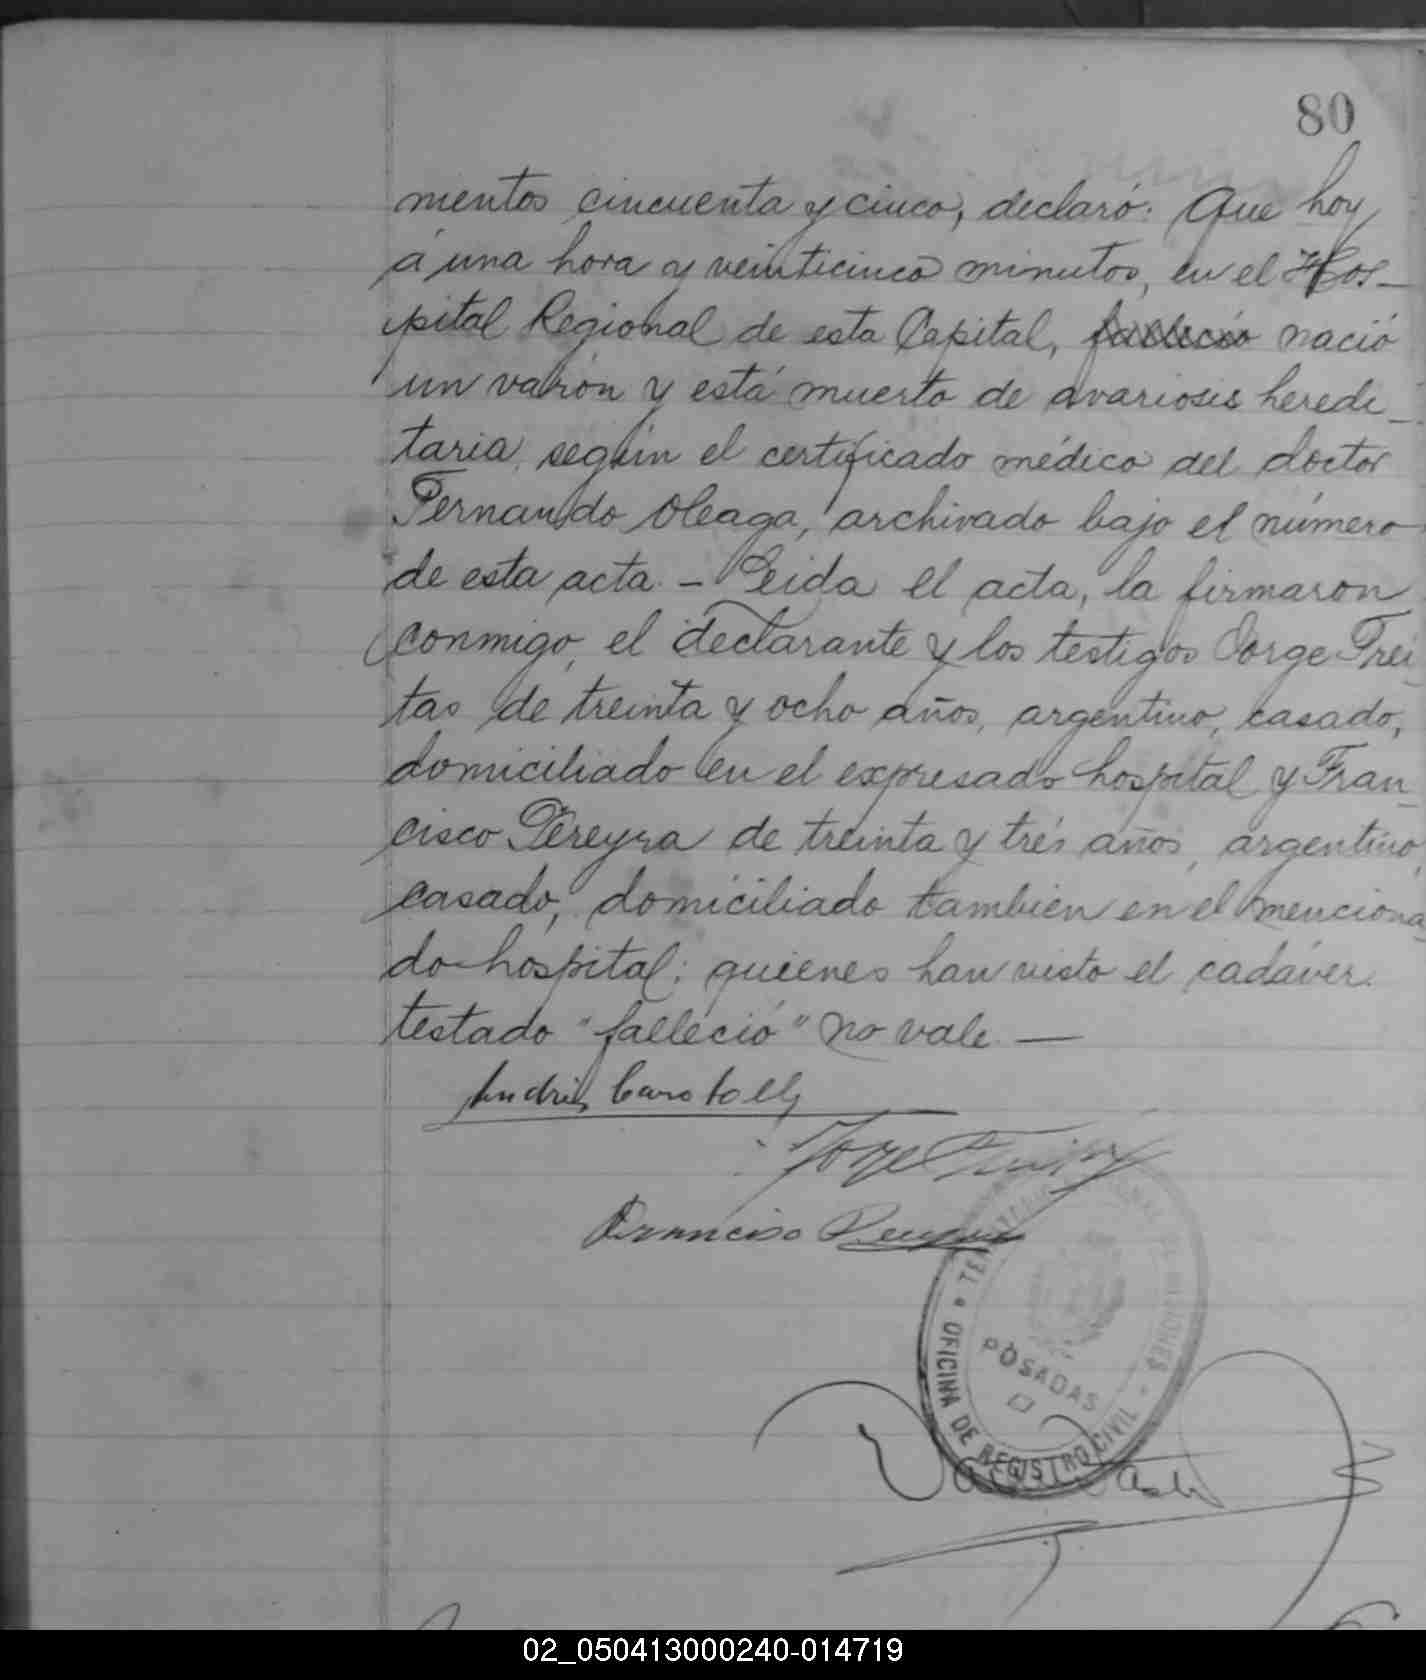 80
mentos cincuenta y cinco, declaró: Que hoy
á una hora y veinticinco minutos, en el Hos-
pital Regional de esta Capital, falleció nació
un varón y está muerto de avariosis heredi-
taria, según el certificado médico del doctor
Fernando Oleaga, archivado bajo el número
de esta acta. - Leida el acta, la firmaron
conmigo, el declarante y los testigos Jorge Frei-
tas de treinta y ocho años, argentino, casado,
domiciliado en el expresado hospital y Fran-
cisco Pereyra de treinta y trés años, argentino,
casado, domiciliado tambien en el menciona-
do hospital; quienes han visto el cadáver.
testado "falleció" no vale. —
Andrés
Jorge
Francisco Pereyra
OFICINA DE REGISTRO CIVIL
POSADAS
02_050413000240-014719